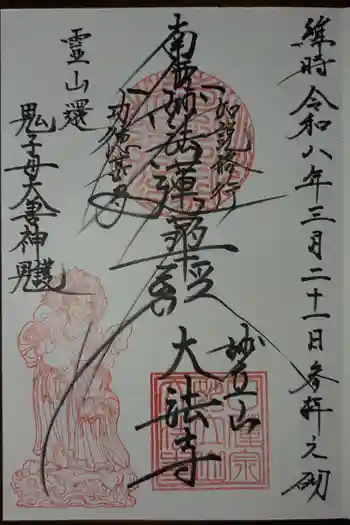 維時 令和八年三月二十一日 参拝之砌
如説修行
南無妙法蓮華経
功徳甚多
妙立山
大法寺
霊山還
鬼子母大善神 護